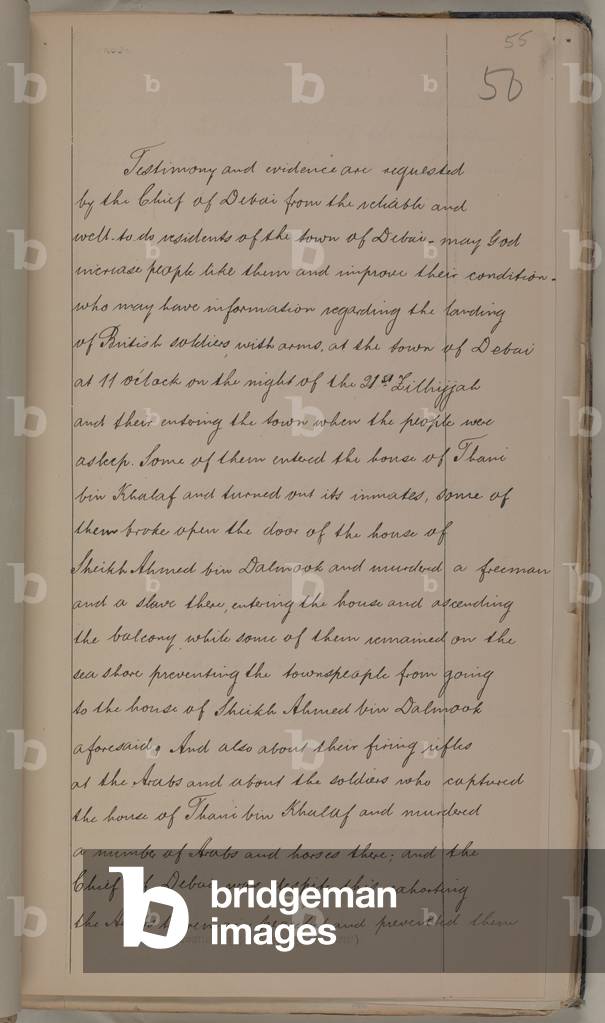 55
50
Testimony and evidence are requested
by the Chief of Debai from the reliable and
well-to-do residents of the town of Debai - may God
increase people like them and improve their condition -
who may have information regarding the landing
of British soldiers, with arms, at the town of Debai
at 11 o'clock on the night of the 21st Zilhijjah
and their entering the town when the people were
asleep. Some of them entered the house of Thani
bin Khalaf and turned out its inmates, some of
them broke open the door of the house of
Sheikh Ahmed bin Dalmook and murdered a freeman
and a slave there, entering the house and ascending
the balcony, while some of them remained on the
sea shore preventing the townspeople from going
to the house of Sheikh Ahmed bin Dalmook
aforesaid; And also about their firing rifles
at the Arabs and about the soldiers who captured
the house of Thani bin Khalaf and murdered
a number of Arabs and horses there; and the
Chief of Debai was despite this exhorting
the and prevented them
bridgeman
images